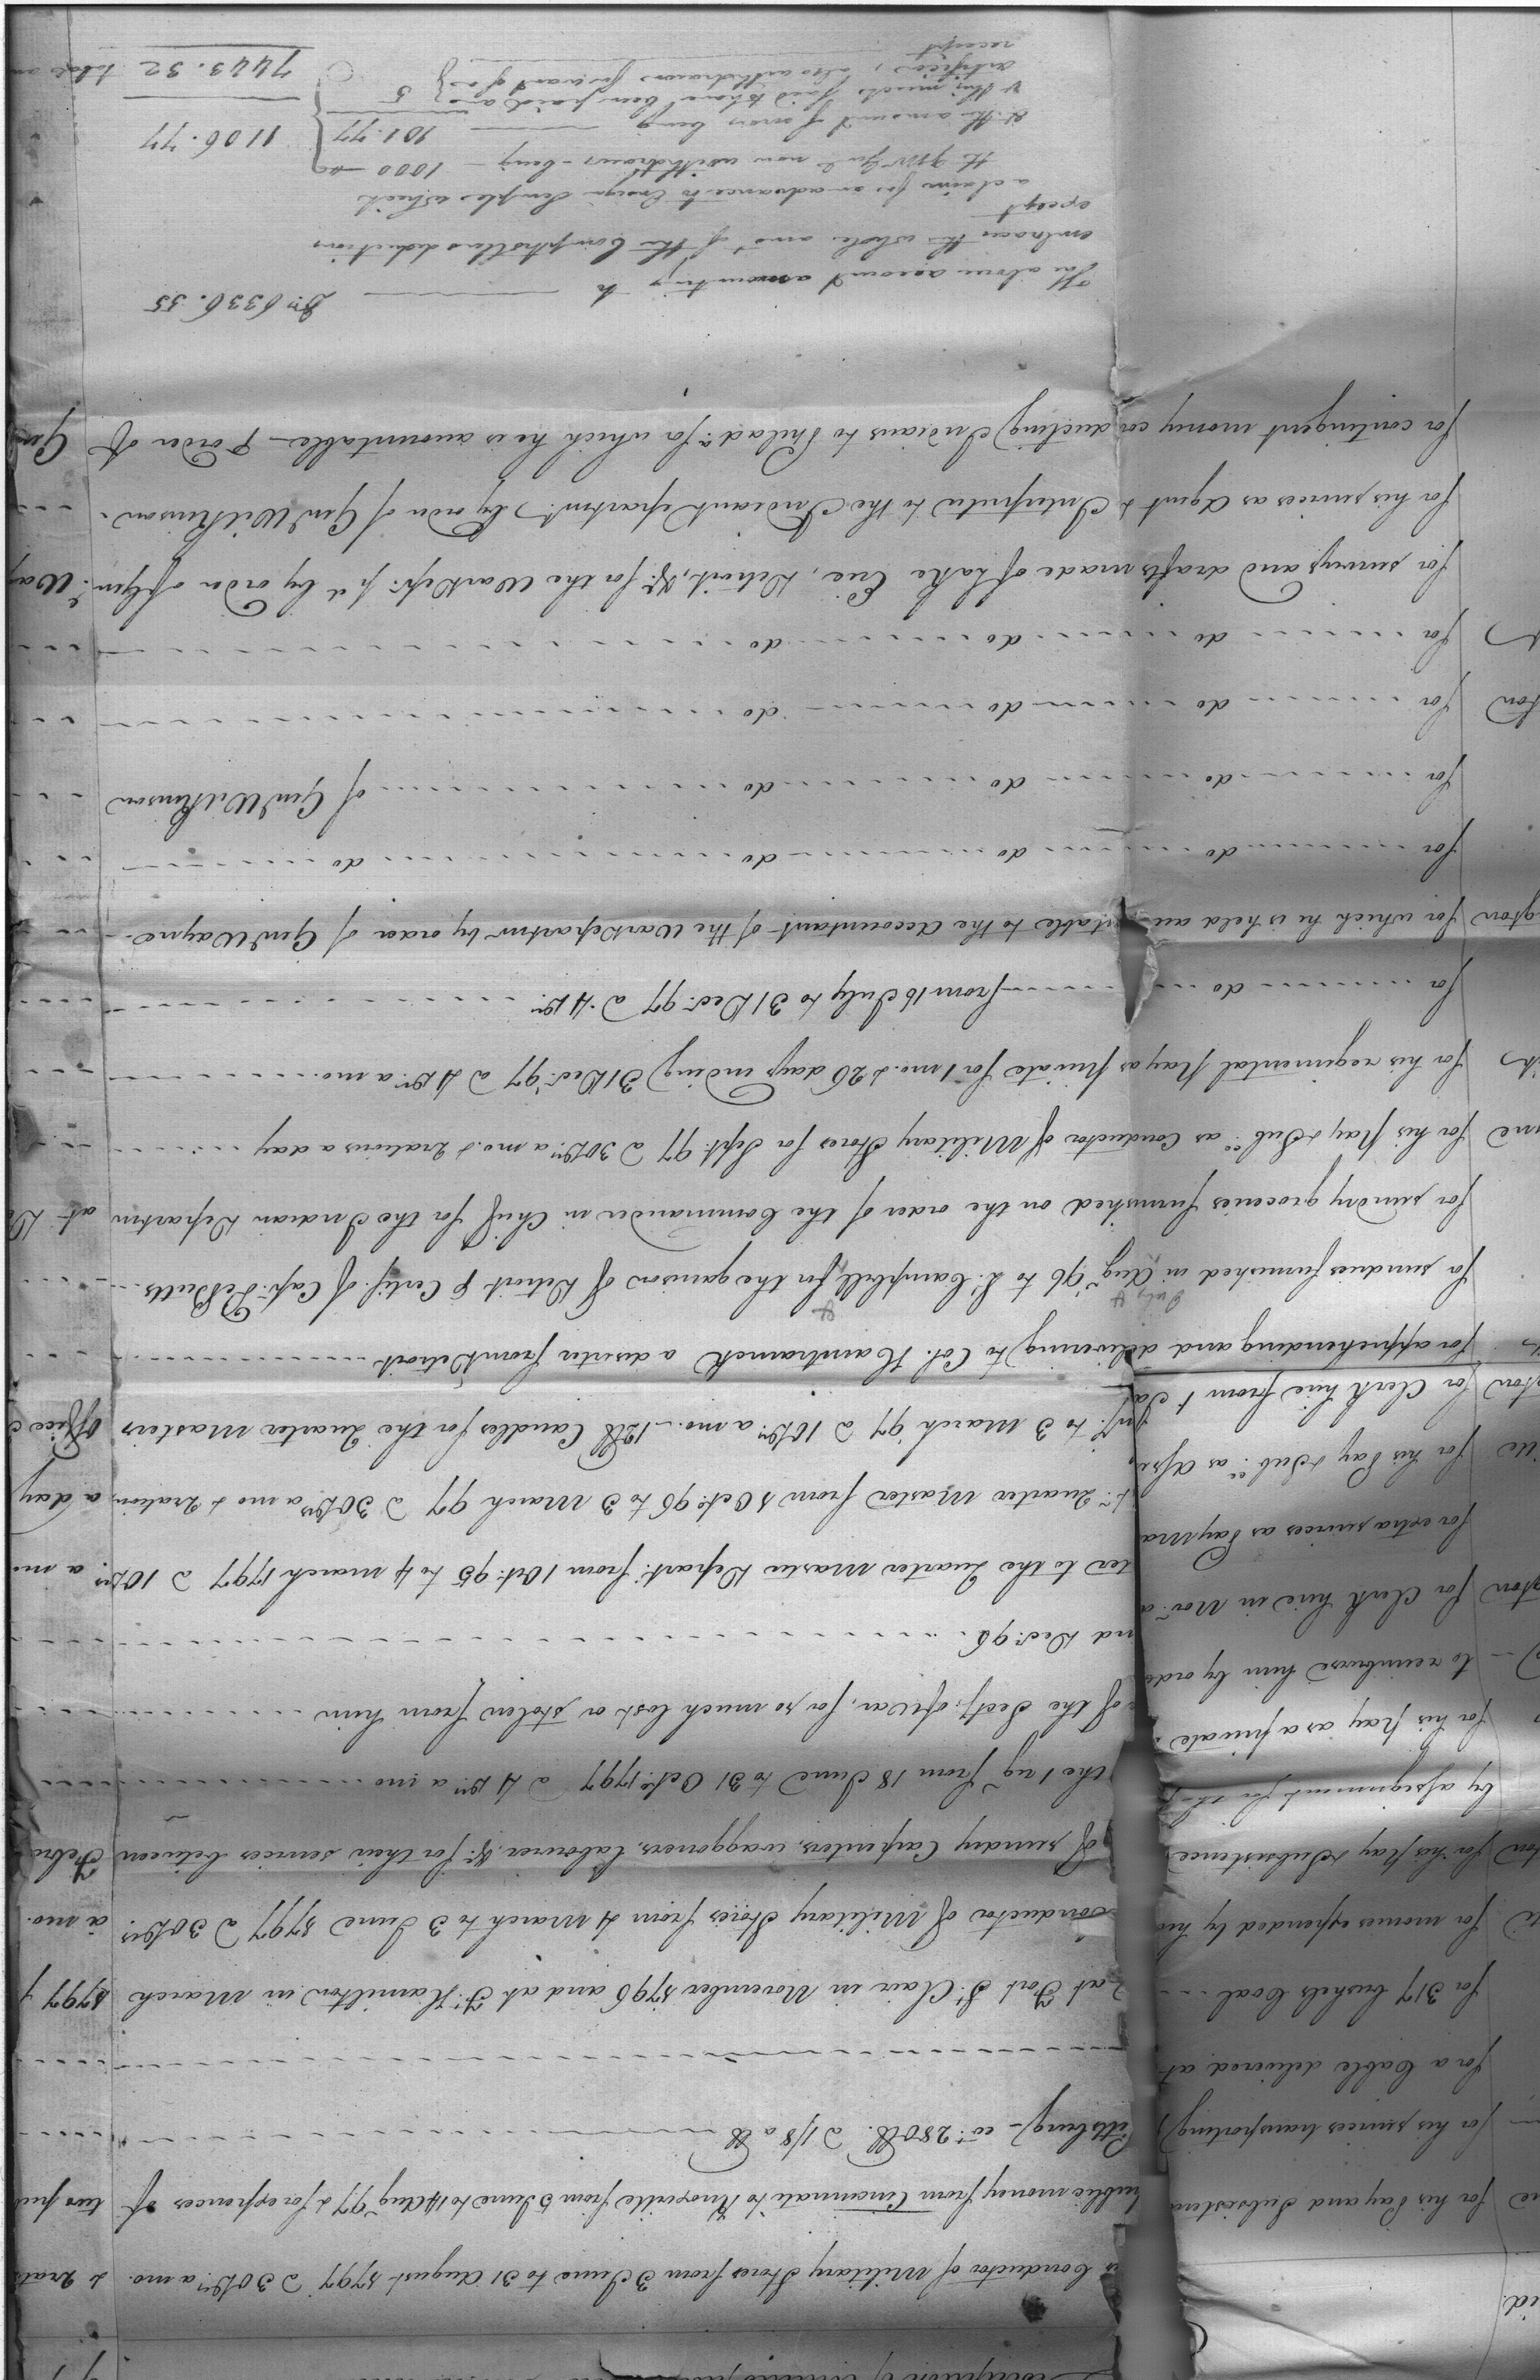 for his Pay and Subsistence as Conductor of Military Stores from 3 June to 31 August 1797 @ 30 Drs a mo. & 2 rati
for his services transporting public money from Cincinnati to Knoxville from 5 June to 14 Augt 97 & for expences of two
for a Cable delivered at Pittsburg - wt 280 lb. @ 1/8 a lb
for 317 bushels Coal
for monies expended by him at Fort St Clair in November 1796 and at Ft Hamilton in March 1797
for his Pay & Subsistence Conductor of Military Stores from 4 March to 3 June 1797 @ 30 Drs a mo.
by assignment of sundry Carpenters, waggoners, labourers &c for their services between Febru
for his Pay as a private the 1 reg from 18 June to 31 Octo 1797 @ 4 Drs a mo
to reimburse him by order of the Secy of War, for so much lost or stolen from him
for Clerk hire in Novr and Decr 96
for extra services as Pay Master to the Quarter Master Depart from 1 Oct 95 to 4 March 1797 @ 10 Drs a mo
for his Pay & Subce as Asst Quarter Master from 1 Octr 96 to 3 March 97 @ 30 Drs a mo & 2 rations a day
for Clerk hire from 1 to 3 March 97 @ 10 Drs a mo. - 12 lb Candles for the Quarter Masters Office
for apprehending and delivering to Col. Hamtramck a deserter from Detroit
July &
for sundries furnished in Augt 96 to L. Campbell for the garrison of Detroit P Certif. of Capt DeButts
for sundry groceries furnished on the order of the Commander in Chief for the Indian Departm at
for his Pay & Subce as Conductor of Military Stores for Sept 97 @ 30 Drs a mo. & 2 rations a day
for his regimental Pay as private for 1 mo. & 26 days ending 31 Decr 97 @ 4 Drs a mo.
for do from 16 July to 31 Decr 97 @ 4 Drs
for which he is held accountable to the Accountant of the War Departm by order of Genl Wayne
for do do do do
for do do do of Genl Wilkinson
for do do do
for do do do
for surveys and drafts made of Lake Erie, Detroit, &c for the War Dept pd by order of Genl Way
for his services as Agent & Interpreter to the Indian Departmt by order of Genl Wilkinson
for contingent money conducting Indians to Philada for which he is accountable P order of Gen
The above account amounting to Drs 6336.55
embraces the whole amot of the Comptrollers deductions
except
a claim for an advance to Ensign Semples which
now withdrawn - being 1000
& the amount of error being 101.77 1106.77
said to have been paid 5
artificer, also withdrawn for want of a
receipt
7443.32 total